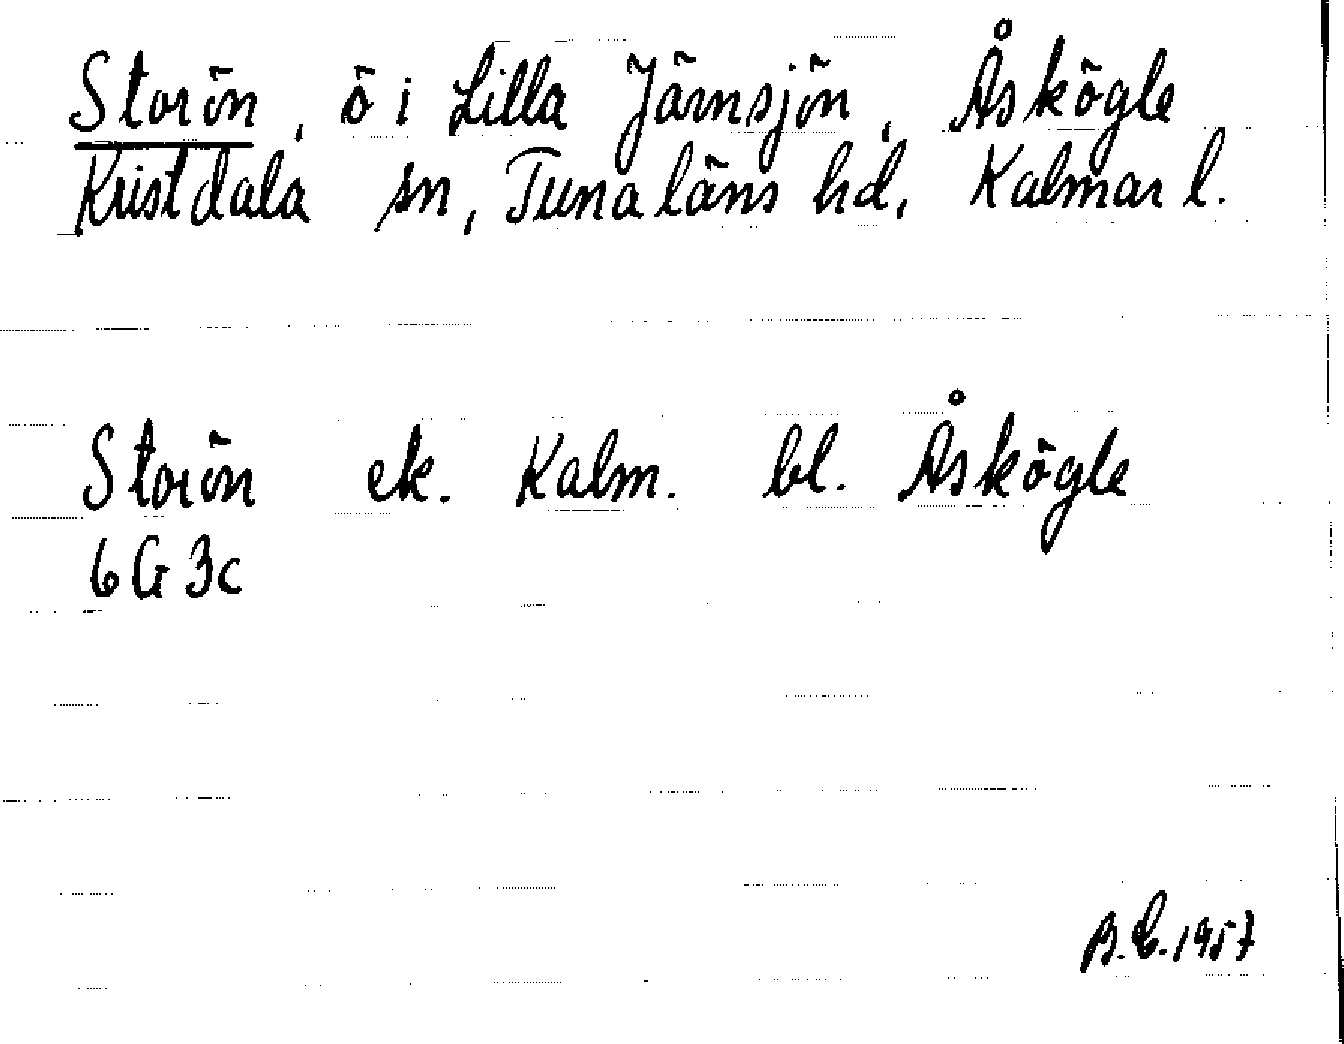 Storön, ö i Lilla Järnsjön, Åskögle
Kristdala sn, Tunaläns hd, Kalmar l.
Storön ek. Kalm. bl. Åskögle
6G3c
B.E. 1957